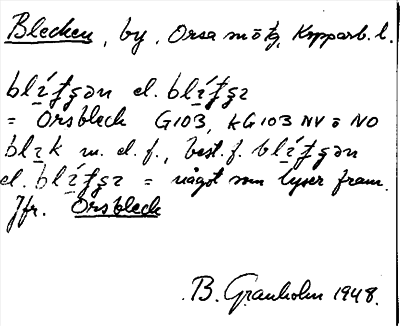 Blecken, by, Orsa sn o tg, Kopparb. l.
blɪ́ʈʂən el. blɪ́ʈʂɪ
= Orsbleck G103, kG103 NV o NO
blɪk m. el. f., best. f. blɪ́ʈʂən
el. blɪ́ʈʂɪ = något som lyser fram.
Jfr. Orsbleck
B. Granholm 1948.